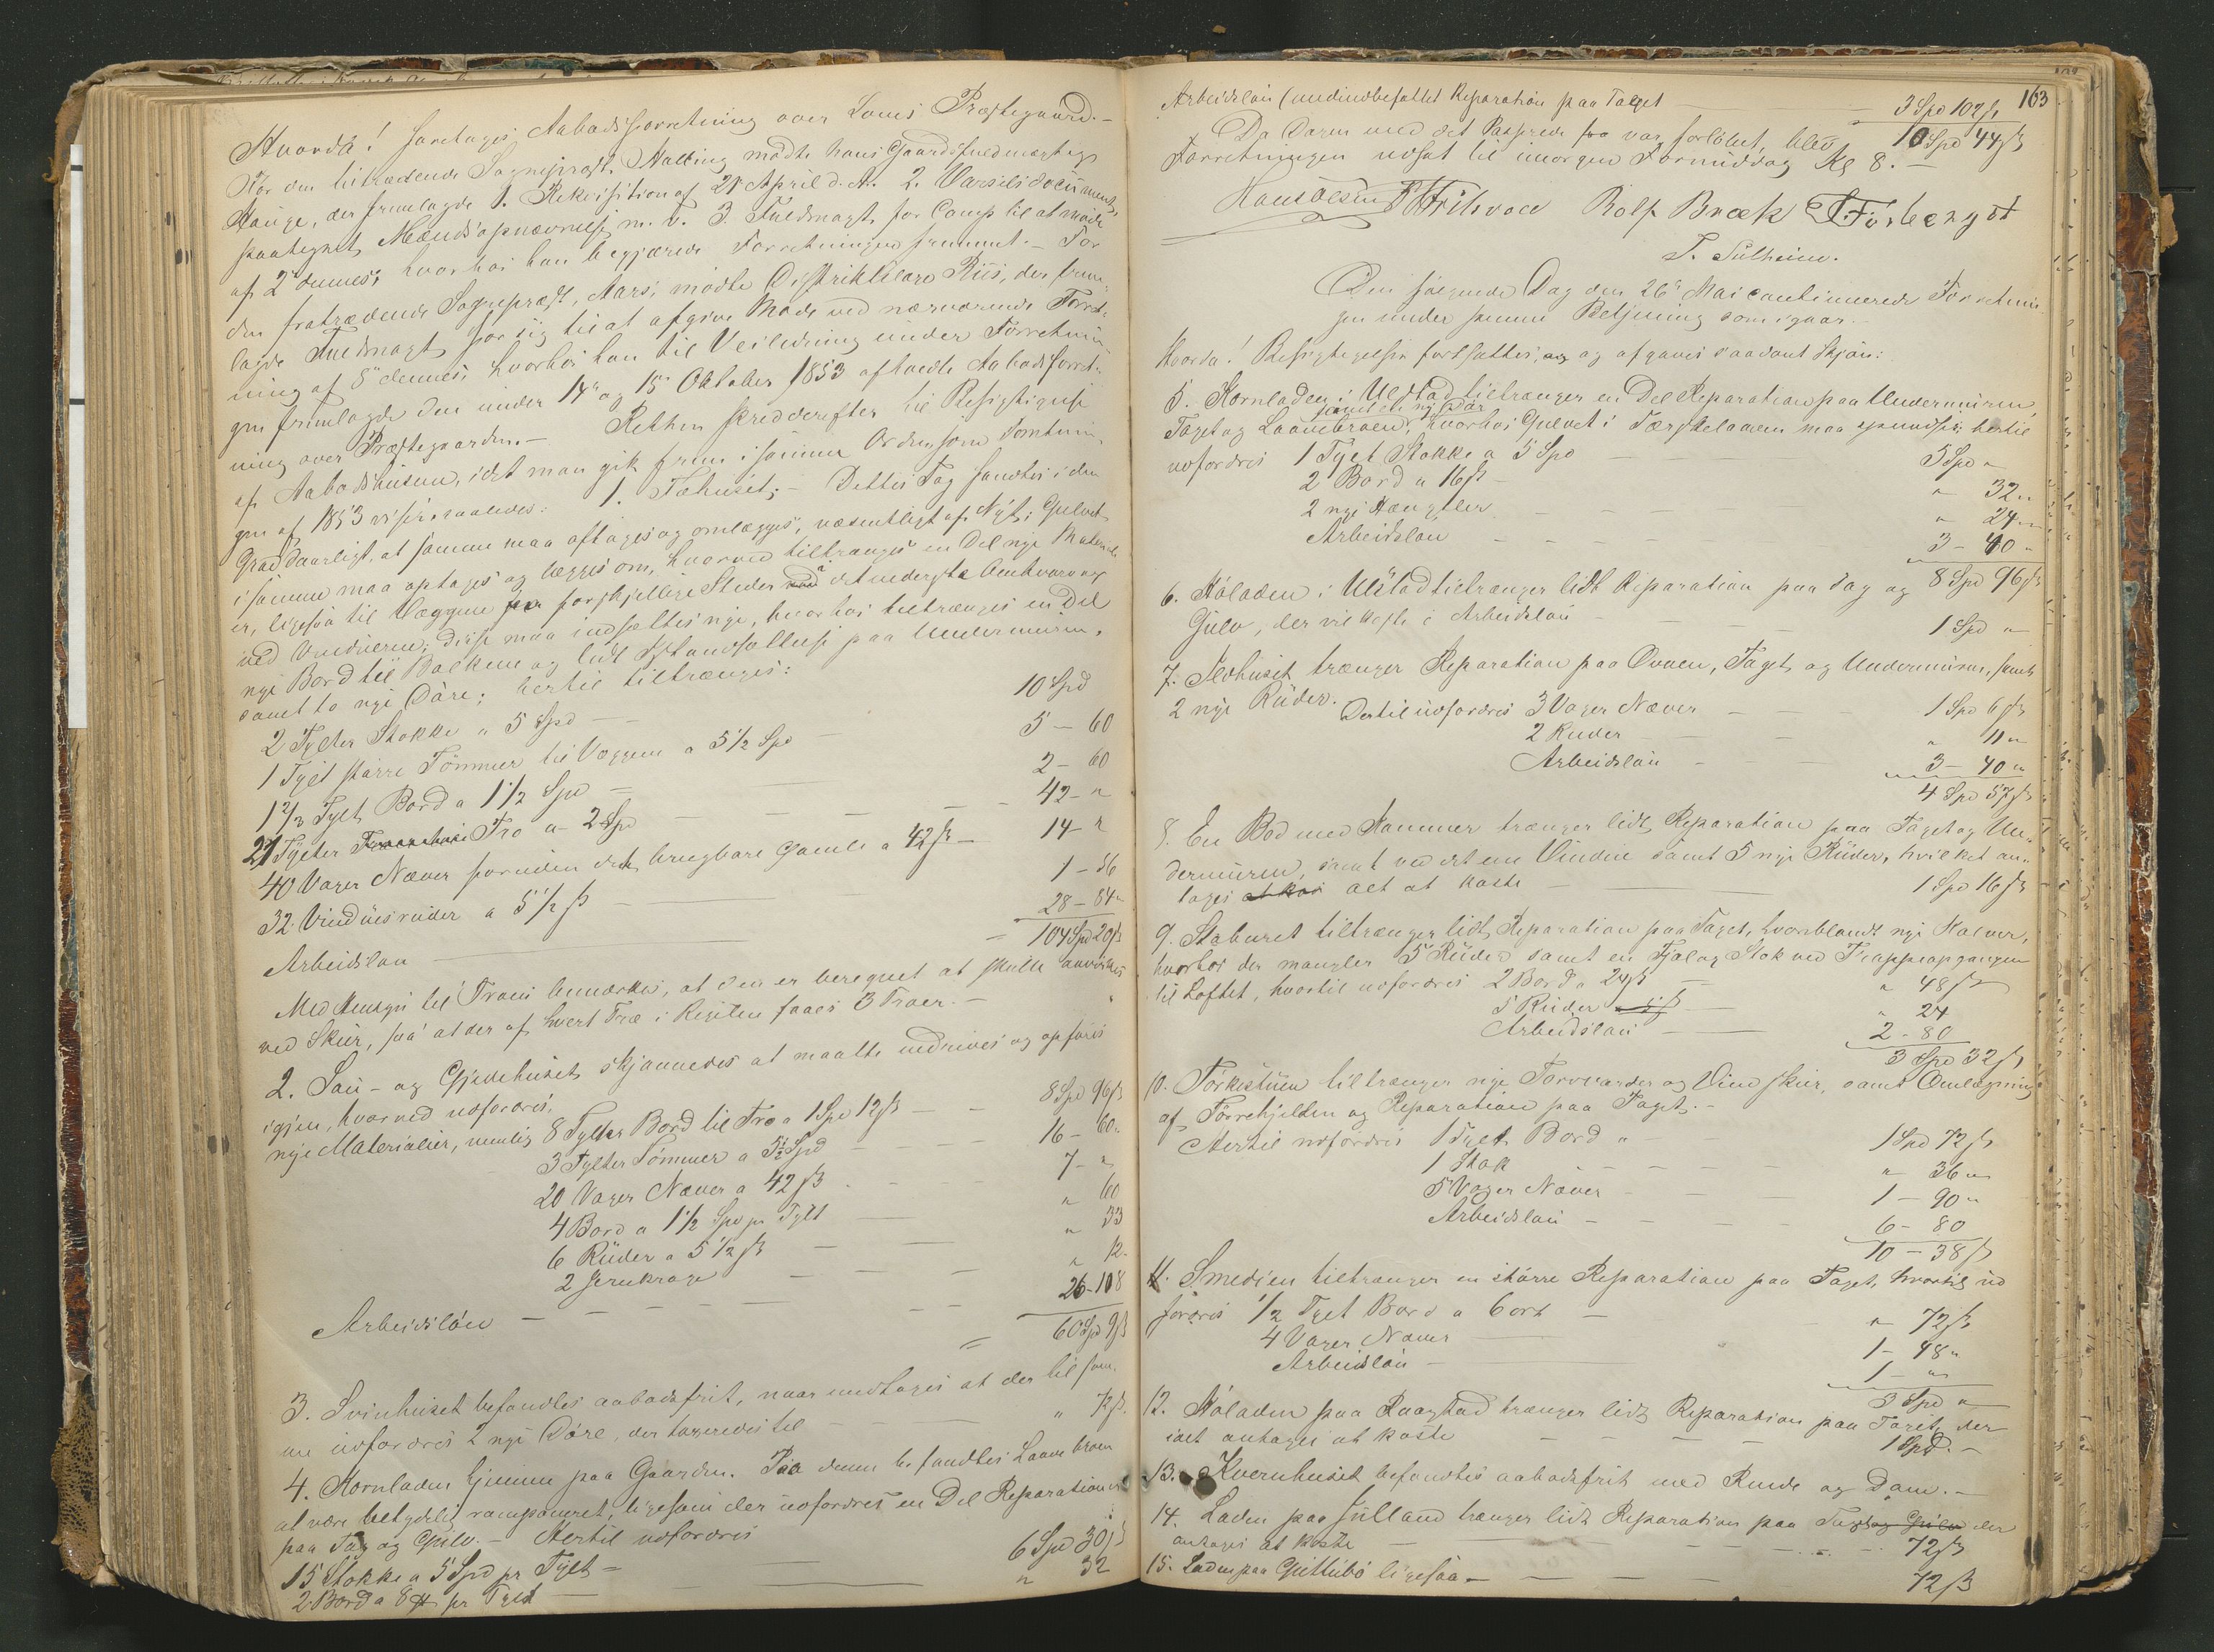 Hvorda! foretoges Aabodsforretning over Loms Præstegaard.
For den tiltrædende Sognepræst, Halling mødte hans Gaardsfuldmægtig
Hauge, der fremlagde 1. Rekvisition af 21 April d. A. 2. Varselsdocument,
paategnet Mændsopnævnelse m. v. 3. Fuldmagt for Comp til at møde
af 2den dennes; hvorhos han begjærede Forretningen fremmet. – For
den fratrædende Sognepræst, Aars, mødte Distriktslæge Riis, der frem-
lagde Fuldmagt for sig til at afgive Møde ved nærværende Forret-
ning af 8de dennes; hvorhos han til Veiledning under Forretnin-
gen fremlagde den under 14de og 15de Oktober 1853 afholdte Aabodsforret-
ning over Præstegaarden. – Retten skred derefter til Besigtigelse
af Aabodshusene, idet man gik frem i samme Orden, som Forretnin-
gen af 1853 viser, saaledes: 1. Fæhuset; – Dettes Tag fandtes i den
Grad daarligt, at samme maa aftages og omlægges, væsentligt af Nyt; Gulvet
i samme maa optages og lægges om, hvorved tiltrænges en Del nye Materialier
er, ligesaa til Væggene paa forskjellige Steder ved det nederste Omkvarv og
ved Vinduerne; disse maa indsættes nye, hvorhos tiltrænges en Del
nye Bord til Balkene og lidt Istandsættelse paa Undermuren,
samt to nye Døre; hertil tiltrænges:
2 Tylter Stokke a 5 Spd – 10 Spd
1 Tylt større Tømmer til Væggene a 5 1/2 Spd – 5 – 60
1 2/3 Tylt Bord a 1 1/2 Spd – 2 – 60
21 Tylter Tro a 2 Spd – 42 – "
40 Voger Næver foruden det brugbare gamle a 42 ß – 14 – "
32 Vinduesruder a 5 1/2 ß – 1 – 56
Arbeidsløn – 28 – 84 "
104 Spd 20 ß
Med Hensyn til Troen bemærkes, at den er beregnet at skulle anvendes
ved Skur, saa at der af hvert Træ i Regelen faaes 3 Troer. –
2. Sau- og Gjedehuset skjønnedes at maatte nedrives og opføres
igjen, hvorved udfordres,
nye Materialier, nemlig 8 Tylter Bord til Tro a 1 Spd 12 ß – 8 Spd 96 ß
3 Tylter Tømmer a 5 1/2 Spd – 16 – 60 "
20 Voger Næver a 42 ß – 7 – "
4 Bord a 1 1/2 Spd pr Tylt – " 60
6 Ruder a 5 1/2 ß – " 33
2 Jernkroge – " 12.
Arbeidsløn – 26 – 108
60 Spd 9 ß
3. Svinhuset befandtes aabodsfrit, naar undtages at der til sam-
me udfordres 2 nye Døre, der taxeredes til – " 72 ß.
4. Kornladen hjemme paa Gaarden. Paa denne befandtes Laavebroen
at være betydelig ramponeret, ligesom der udfordres en Del Reparationer
paa Tag og Gulv. – Hertil udfordres
15 Stokke a 5 Spd pr Tylt – 6 Spd 30 ß
2 Bord a 8 pr Tylt – " 32
163
Arbeidsløn (medindbefattet Reparation paa Taget – 3 Spd 102 ß
10 Spd 44 ß
Da Daren med det Passerede var forløbet, blev
Forretningen udsat til imorgen Formiddag Kl 8. –
Hans Olsen Rolf Bræk
T. Sulheim.
Den følgende Dag den 26de Mai continuerede Forretnin-
gen under samme Betjening som igaar. –
Hvorda! Besigtigelsen fortsattes, og afgaves saadant Skjøn:
5. Kornladen i Ulstad tiltrænger en Del Reparation paa Undermuren,
samt en ny Dør
Taget og Laavebroen, hvorhos Gulvet i Tærskelaaven maa spundses; hertil
udfordres 1 Tylt Stokke a 5 Spd – 5 Spd "
2 Bord a 16 ß – " 32 "
2 nye Hængsler – " 24 "
Arbeidsløn – 3 – 40 "
8 Spd 96 ß
6. Høladen i Ulstad tiltrænger lidt Reparation paa Tag og
Gulv, der vil koste i Arbeidsløn – 1 Spd "
7. Ildhuset trænger Reparation paa Ovnen, Taget og Undermuren, samt
2 nye Ruder. Dertil udfordres 3 Voger Næver – 1 Spd 6 ß
2 Ruder – " 11 "
Arbeidsløn – 3 – 40 "
4 Spd 57 ß
8. En Bod med Kammer trænger lidt Reparation paa Taget og Un-
dermuren, samt ved det ene Vindue samt 5 nye Ruder, hvilket an-
tages alt at koste – 1 Spd 16 ß
9. Staburet tiltrænger lidt Reparation paa Taget, hvoriblandt nye Halver,
hvorhos der mangler 5 Ruder samt en Fjæl og Stok ved Trappeopgangen
til Loftet, hvortil udfordres 2 Bord a 24 ß – " 48 ß
5 Ruder – " 24
Arbeidsløn – 2 – 80
3 Spd 32 ß
10. Tørkestuen tiltrænger nye Torvvarder og Vindskeer, samt Omlægning
af Tørrehjelden og Reparation paa Taget. –
Hertil udfordres 1 Tylt Bord " – 1 Spd 72 ß
1 Stok – " 36 "
5 Voger Næver – 1 – 90 "
Arbeidsløn – 6 – 80
10 – 38 ß
11. Smedien tiltrænger en større Reparation paa Taget, hvortil ud
fordres 1/2 Tylt Bord a 6 ort – " 72 ß
4 Voger Næver – 1 – 48 "
Arbeidsløn – 1 – "
3 Spd "
12. Høladen paa Raastad trænger lidt Reparation paa Taget, der
idet antages at koste – 1 Spd. –
13. Kvernhuset befandtes aabodsfrit med Rende og Dam. –
14. Laden paa Julland trænger lidt Reparation paa Tag og Gulv der
antages at koste – 72 ß
15. Laden paa Guttubø ligesaa – 72 ß